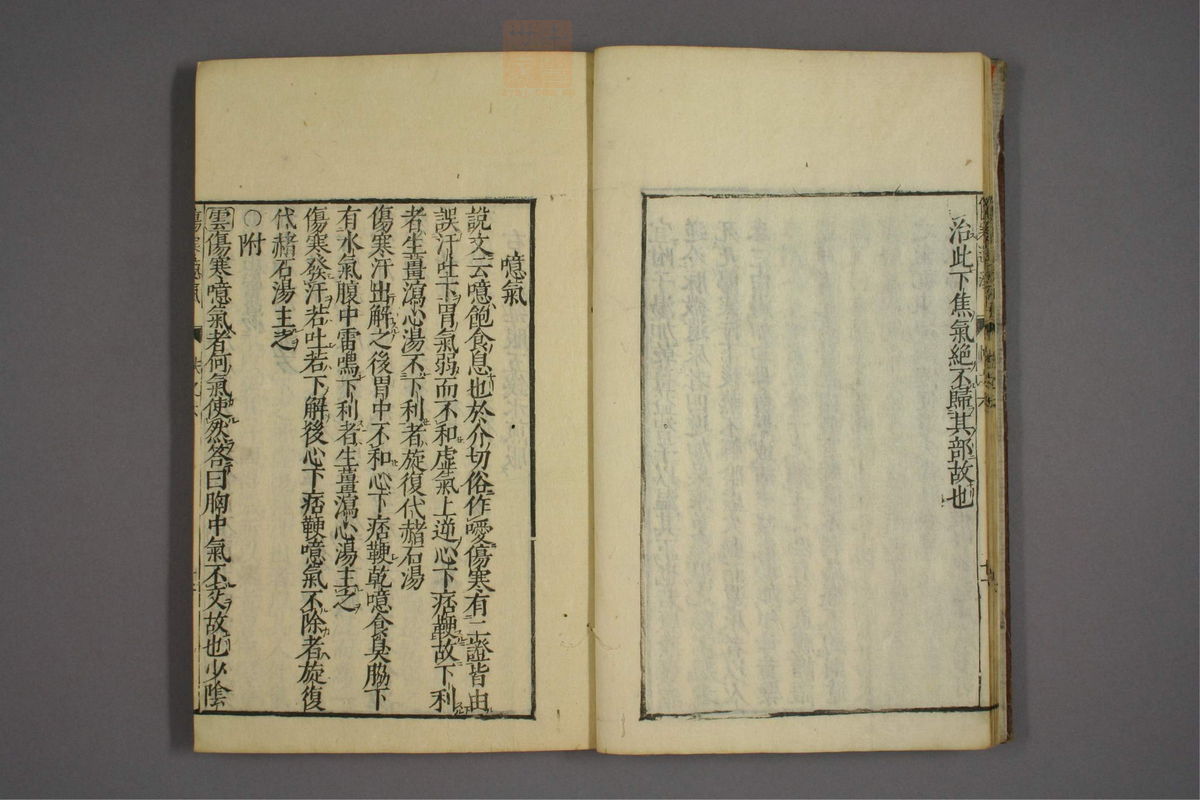 治此下焦氣絕不歸其部故也
噫氣
說文云噫飽食息也於介切俗作噯傷寒有二證皆由
誤汗吐下胃氣弱而不和虛氣上逆心下痞鞕故下利
者生薑瀉心湯不下利者旋復代赭石湯
傷寒汗出解之後胃中不和心下痞鞕乾噫食臭脇下
有水氣腹中雷鳴下利者生薑瀉心湯主之
傷寒發汗若吐若下解後心下痞鞕噫氣不除者旋復
代赭石湯主之
○附
雲傷寒噫氣者何氣使然答曰胸中氣不交故也少陰
傷寒噫氣